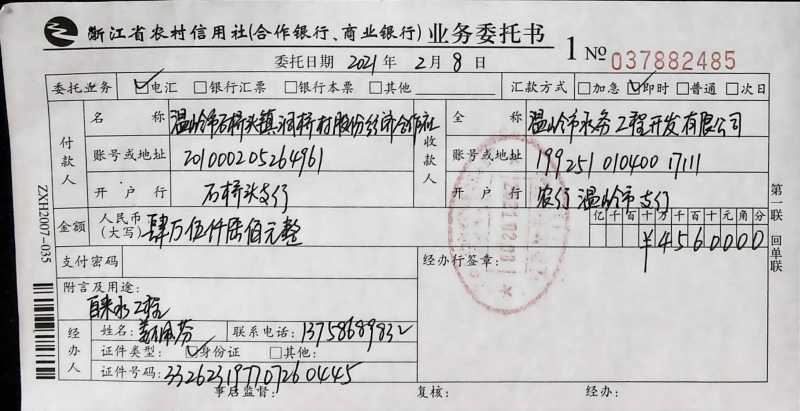 浙江省农村信用社(合作银行、商业银行)业务委托书
1 No 037882485
委托日期 2021 年 2 月 8 日
委托业务 ✓电汇 □银行汇票 □银行本票 □其他 汇款方式 □加急 ✓即时 □普通 □次日
付款人
名称 温岭市石桥头镇 桥村股份经济合作社
账号或地址 201000205264961
开户行 石桥头支行
收款人
全称 温岭市水务工程开发有限公司
账号或地址 19925101040017111
开户行 农行温岭市支行
金额 人民币(大写) 肆万伍仟陆佰元整
亿千百十万千百十元角分
¥4560000
支付密码
经办行签章:
附言及用途:
自来水工程
经办人
姓名: 佩芬 联系电话: 13758689832
证件类型: ✓身份证 □其他:
证件号码: 332623197707260445
事后监督: 复核: 经办:
第一联 回单联
ZXH2007-035